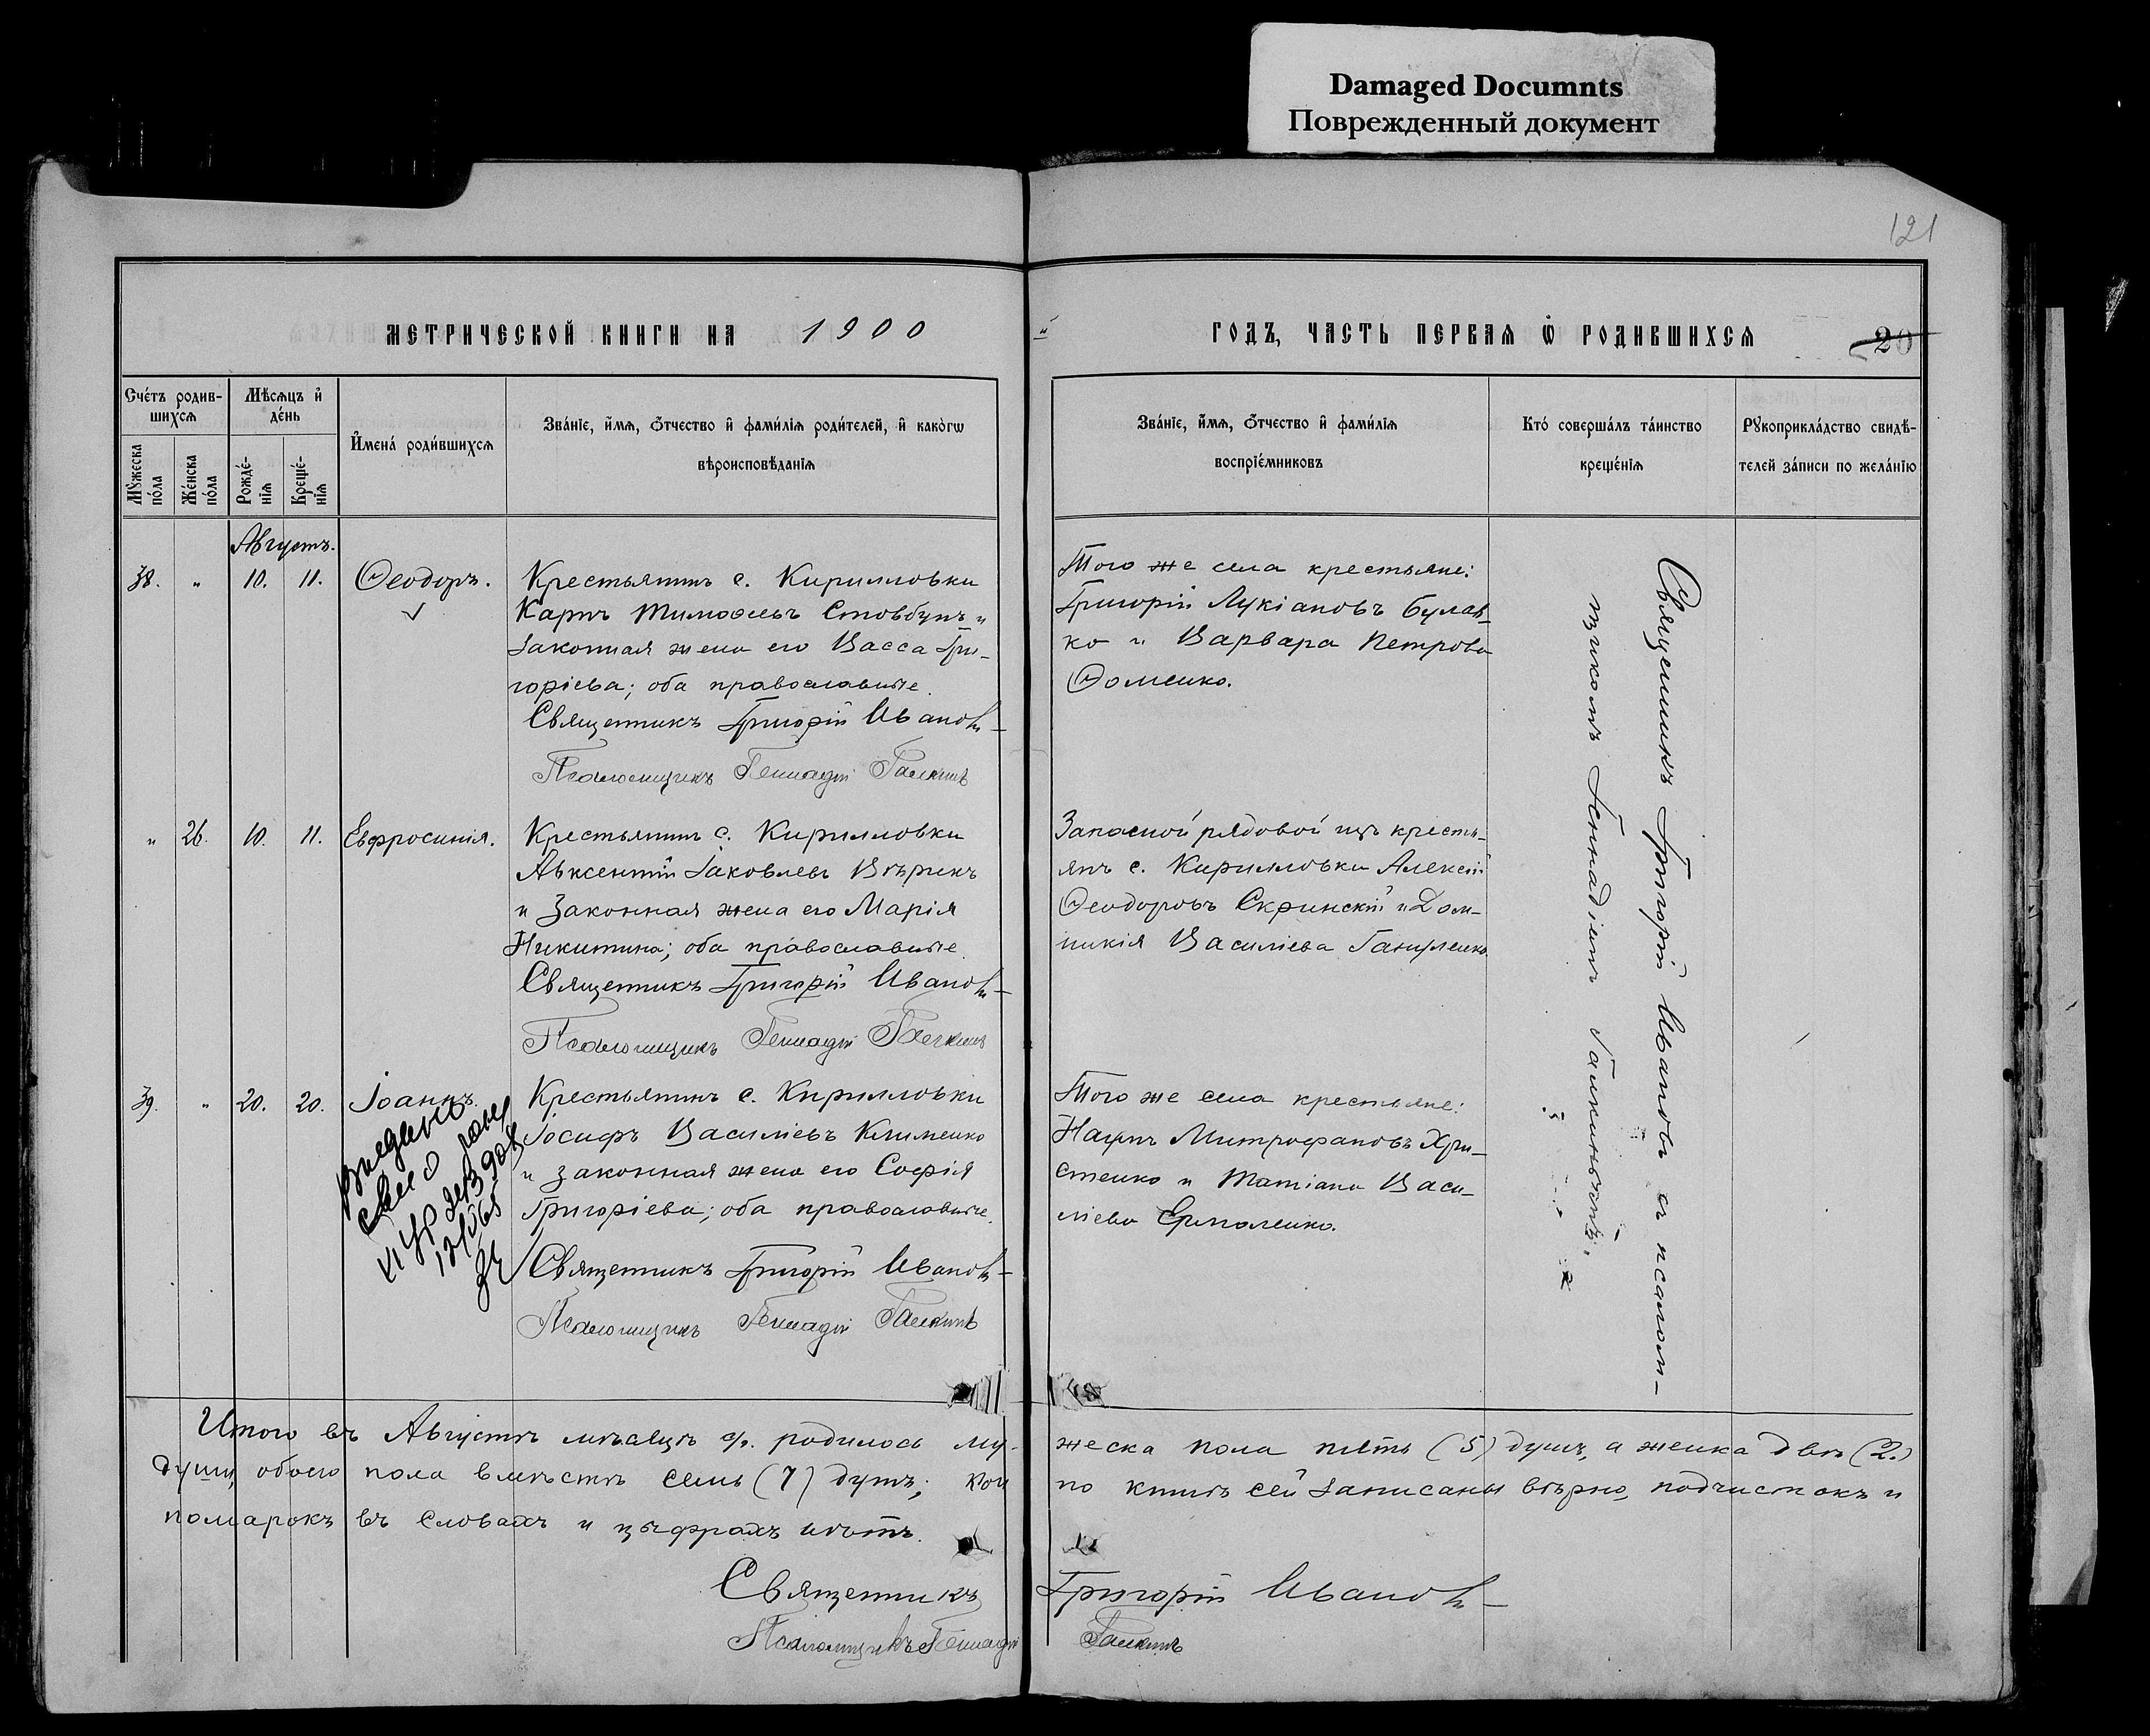 Damaged Documnts
Поврежденный документ
121
МЕТРИЧЕСКОЙ КНИГИ НА 1900
ГОДЪ, ЧАСТЬ ПЕРВАЯ Ѡ РОДИВШИХСЯ
20
Счетъ родив-
шихся
Мѣсяцъ и
день
Мужеска
пола
Женска
пола
Рожде-
нія
Креще-
нія
Имена родившихся
Званіе, имя, отчество и фамилія родителей, и какогѡ
вѣроисповѣданія
Званіе, имя, отчество и фамилія
воспріемниковъ
Кто совершалъ таинство
крещенія
Рукоприкладство свидѣ-
телей записи по желанію
Августъ.
38. " 10. 11. Ѳеодоръ.
Крестьянинъ с. Кирилловки
Карпъ Тимоѳеевъ Стовбунъ и
законная жена его Васса Гри-
горіева; оба православные.
Священникъ Григорій Ивановъ
Псаломщикъ Геннадій Галкинъ
Того же села крестьяне:
Григорій Лукіановъ Булав-
ко и Варвара Петрова
Ѳоменко.
" 26. 10. 11. Евфросинія.
Крестьянинъ с. Кирилловки
Авксентій Іаковлевъ Вѣрикъ
и законная жена его Марія
Никитина; оба православные.
Священникъ Григорій Ивановъ
Псаломщикъ Геннадій Галкинъ
Запасной рядовой изъ кресть-
янъ с. Кирилловки Алексій
Ѳеодоровъ Скринскій и Дом-
никія Василіева
39. " 20. 20. Іоаннъ.
Крестьянинъ с. Кирилловки
Іосифъ Василіевъ Клименко
и законная жена его Софія
Григоріева; оба православные.
Священникъ Григорій Ивановъ
Псаломщикъ Геннадій Галкинъ
Того же села крестьяне:
Наумъ Митрофановъ Хри-
стенко и Татіана Васи-
ліева Ермоленко.
Священникъ Григорій Ивановъ съ псалом-
щикомъ Геннадіемъ Галкинымъ.
Итого въ Августѣ мѣсяцѣ с/г. родилось му-
жеска пола пять (5) душъ, а женка двѣ (2.)
души, обоего пола вмѣстѣ семь (7) душъ; кои
по книгѣ сей записаны вѣрно, подчистокъ и
помарокъ въ словахъ и цыфрахъ нѣтъ.
Священникъ Григорій Ивановъ
Псаломщикъ Геннадій Галкинъ